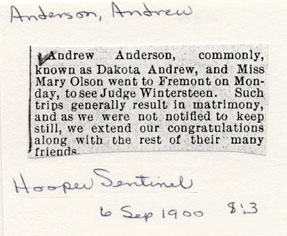 Anderson, Andrew
Andrew Anderson, commonly,
known as Dakota Andrew, and Miss
Mary Olson went to Fremont on Mon-
day, to see Judge Wintersteen. Such
trips generally result in matrimony,
and as we were not notified to keep
still, we extend our congratulations
along with the rest of their many
friends.
Hooper Sentinel
6 Sep 1900 8:3